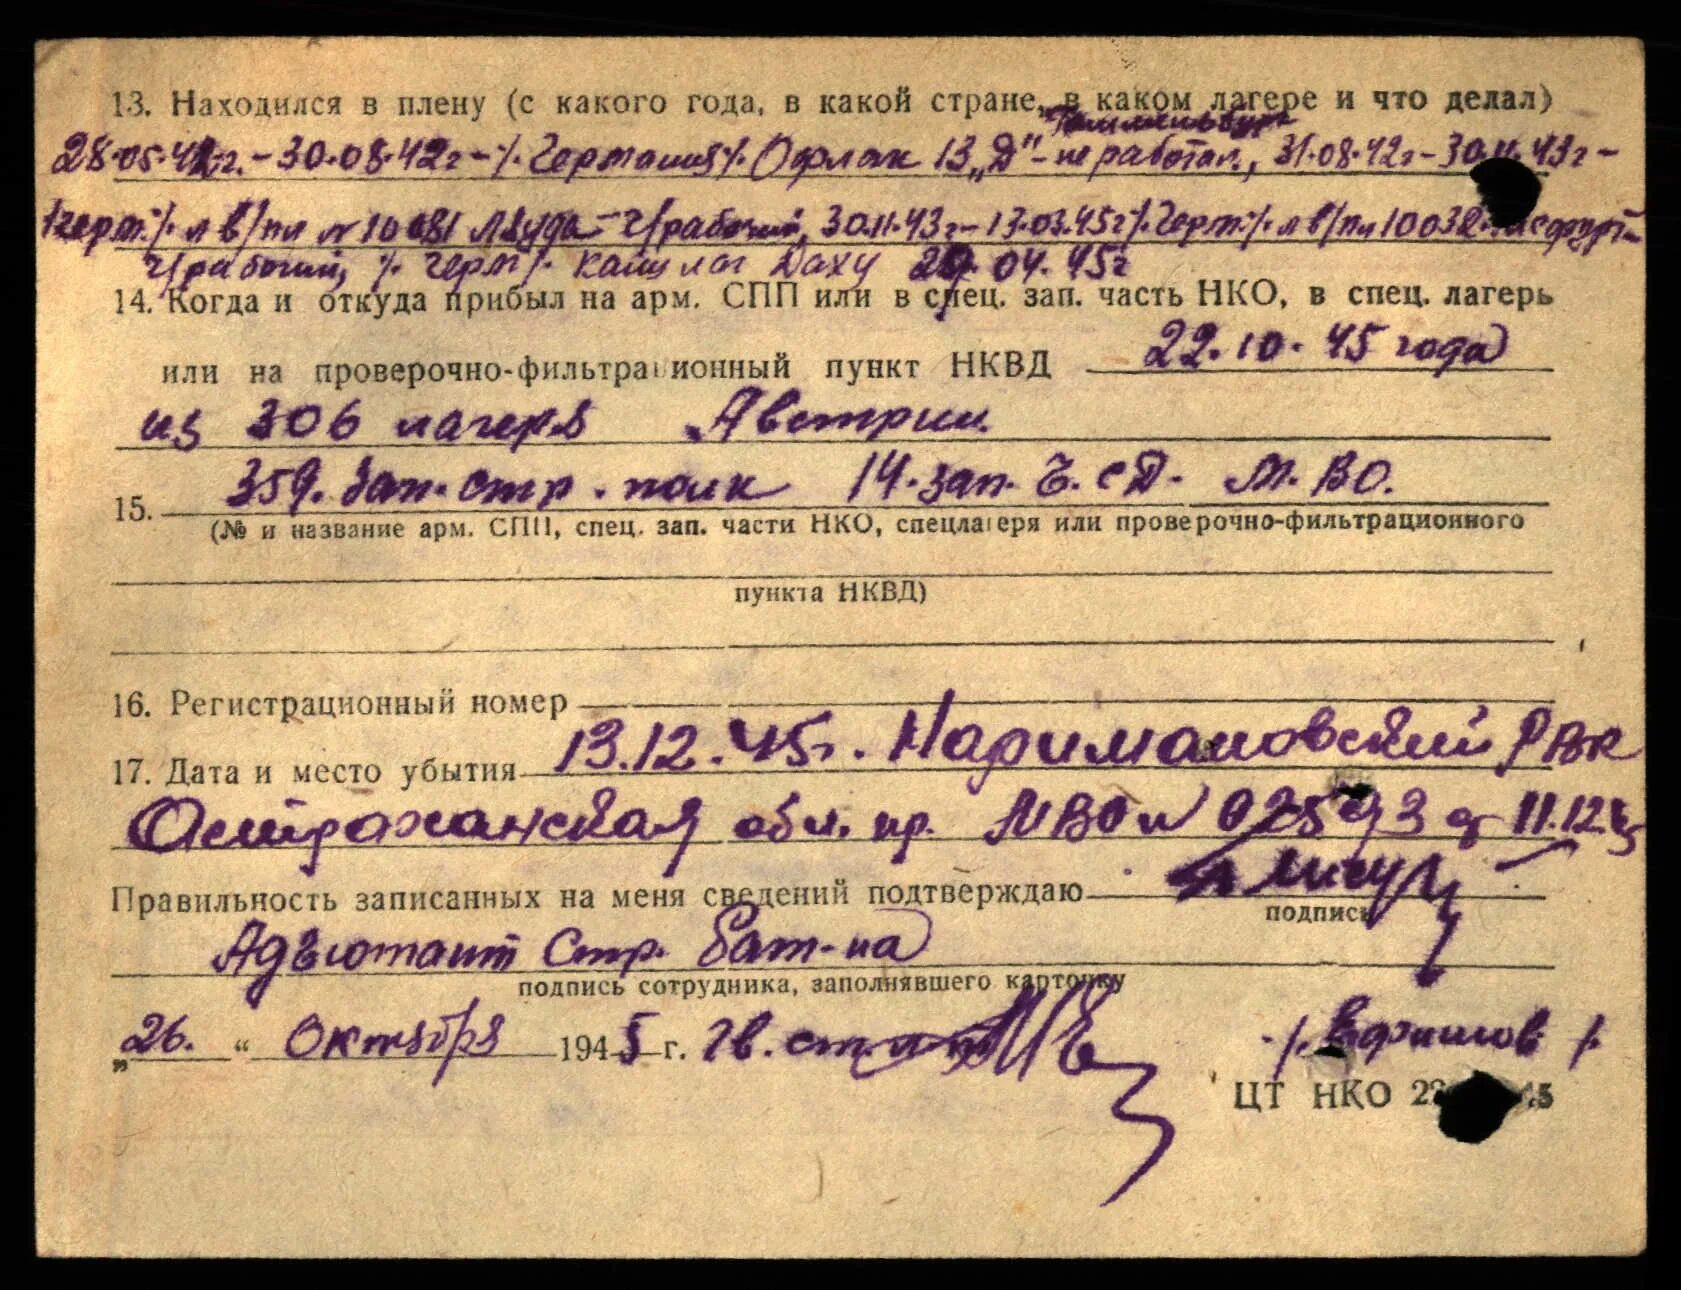 13. Находился в плену (с какого года, в какой стране, в каком лагере и что делал)
28.05.42г. – 30.08.42г – /Германия/ Офлак 13 „Д" – не работал, 31.08.42г – 30.11.43г –
/герм./ л в/пл № 10081 – ч/рабочий, 30.11.43г – 13.03.45г /герм./ л в/пл 10032
ч/рабочий, /герм/. лаг Даху 29.04.45г
14. Когда и откуда прибыл на арм. СПП или в спец. зап. часть НКО, в спец. лагерь
или на проверочно-фильтрационный пункт НКВД 22.10.45 года
из 306 лагеря Австрии.
15. 359. Зап. стр. полк 14. зап. СД. М.ВО.
(№ и название арм. СПП, спец. зап. части НКО, спецлагеря или проверочно-фильтрационного
пункта НКВД)
16. Регистрационный номер
17. Дата и место убытия 13.12.45г. Наримановский РВК
Астраханская обл. пр. МВО № 02593 от 11.12.45
Правильность записанных на меня сведений подтверждаю
подпись
Адъютант Стр. бат-на
подпись сотрудника, заполнявшего карточку
„26." Октября 1945 г. Гв. ст.
ЦТ НКО 45